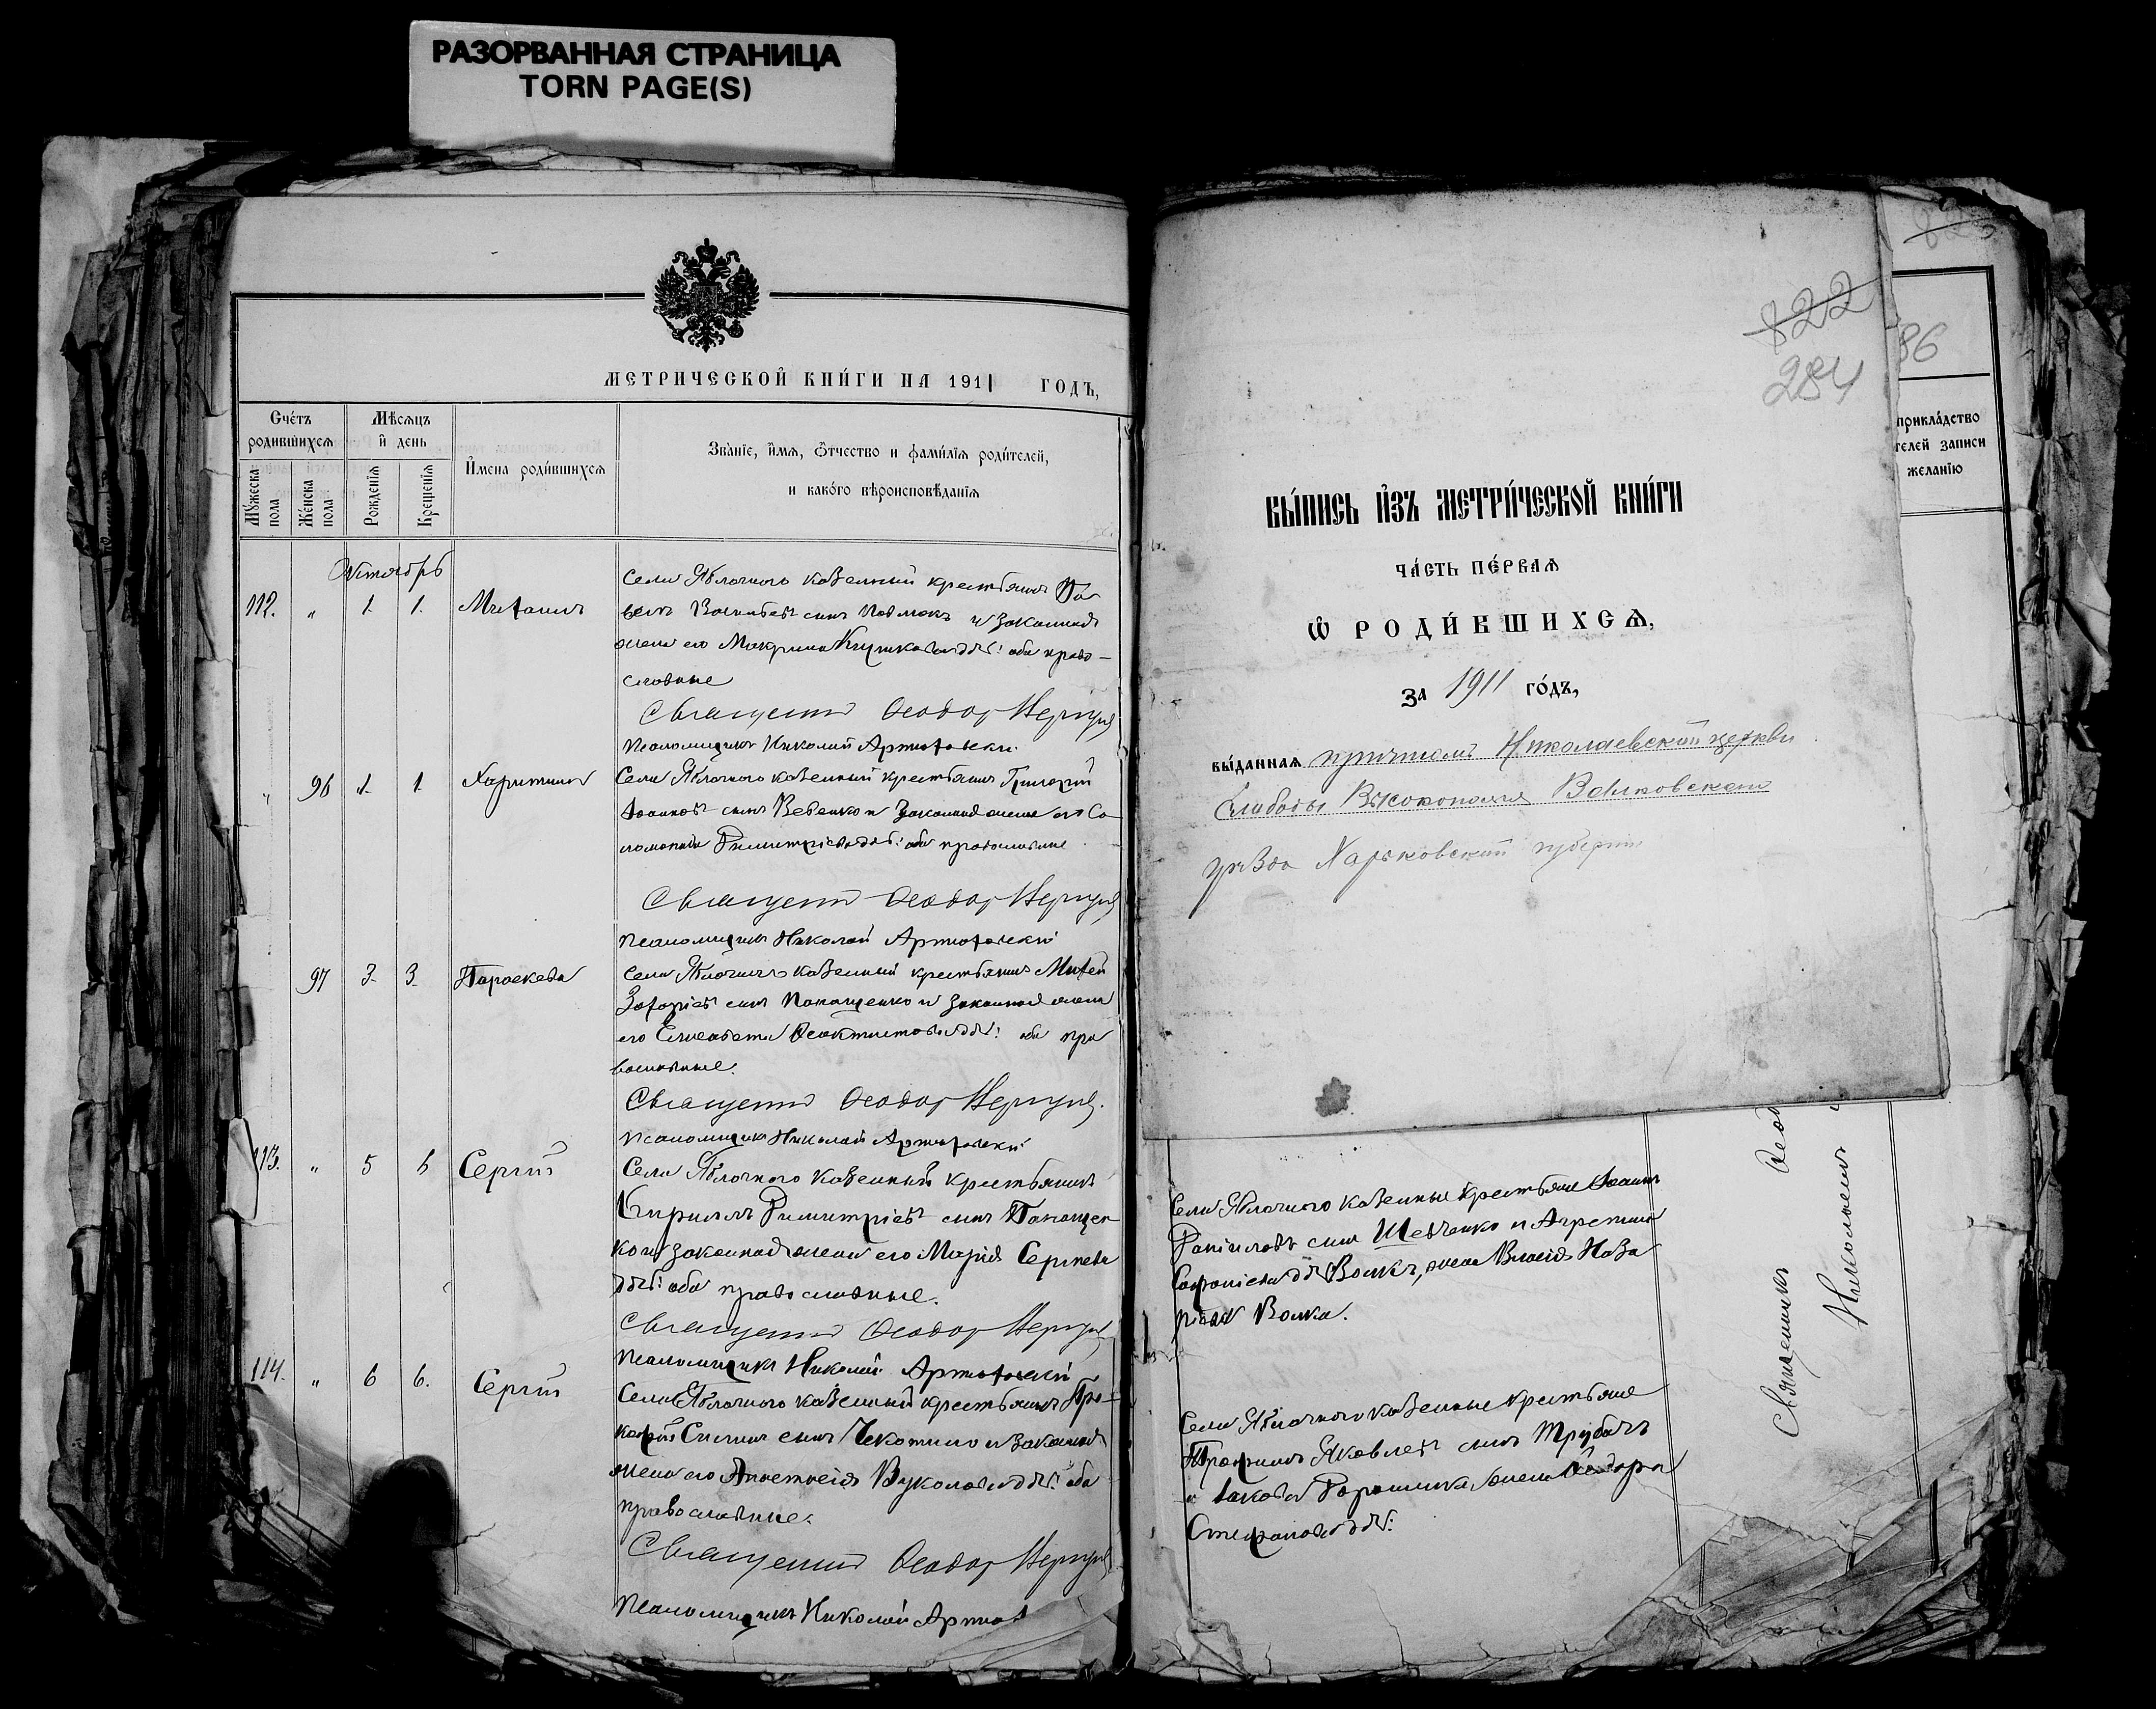 РАЗОРВАННАЯ СТРАНИЦА
TORN PAGE(S)
МЕТРИЧЕСКОЙ КНИ́ГИ НА 1911 ГОДЪ,
Сче́тъ родившихсѧ
Мѣсѧцъ и҆ день
И҆мена роди́вшихсѧ
Зва̀нїе, и҆́мѧ, ѻ҆́тчество и фами́лїѧ роди́телей,
и како́го вѣроисповѣ́данїѧ
Мꙋжеска пола
Же́нска пола
Рожденїѧ
Крещенїѧ
Октябрь
112. " 1. 1. Михаилъ
Села Яблочного казенный крестьянинъ Па-
велъ сынъ и законная
жена его Макрина оба право-
славные
Священник Ѳеодор
Псаломщикъ Николай Артюховский
" 96 1. 1. Харитина
Села Яблочного казенный крестьянинъ Григорий
сынъ и законная жена его Со-
ломония Димитриева оба православные
Священник Ѳеодор
Псаломщикъ Николай Артюховский
97 3. 3. Параскева
Села Яблочного казенный крестьянинъ Михей
Захаріевъ сынъ Панащенко и законная жена
его Елисавета Ѳеоктистова оба пра
вославные.
Священник Ѳеодор
Псаломщикъ Николай Артюховский
113. " 5 6 Сергій
Села Яблочного казенный крестьянинъ
Кириллъ Димитріевъ сынъ Панащен
ко и законная жена его Марія Сергиева
оба православные.
Священник Ѳеодор
Псаломщикъ Николай Артюховский
114. " 6 6. Сергій
Села Яблочного казенный крестьянинъ Про-
кофій сынъ и законная
жена его Анастасія Вуколова оба
православные.
Священник Ѳеодор
Псаломщикъ Николай Артюх
822
284
86
ВЫ́ПИСЬ И҆ЗЪ МЕТРИ́ЧЕСКОЙ КНИ́ГИ
ЧА́СТЬ ПЕ́РВАѦ
Ѡ҆ РОДИ́ВШИХСѦ,
за 1911 го́дъ,
вы́даннаѧ причтомъ Николаевской церкви
Слободы Высокополья Валковскаго
уѣзда Харьковской губерніи
прикла́дство
телей записи
желанїю
Села Яблочного казенные крестьяне Іоаннъ
Даніиловъ сынъ Шевченко и Агрепина
Софрониева Волкъ, жена Власія Наза
ріева Волка.
Села Яблочного казенные крестьяне
Трофимъ Яковлевъ сынъ Трубачъ
и жена Ѳеодора
Стефанова
Священникъ Ѳеод
Николаемъ